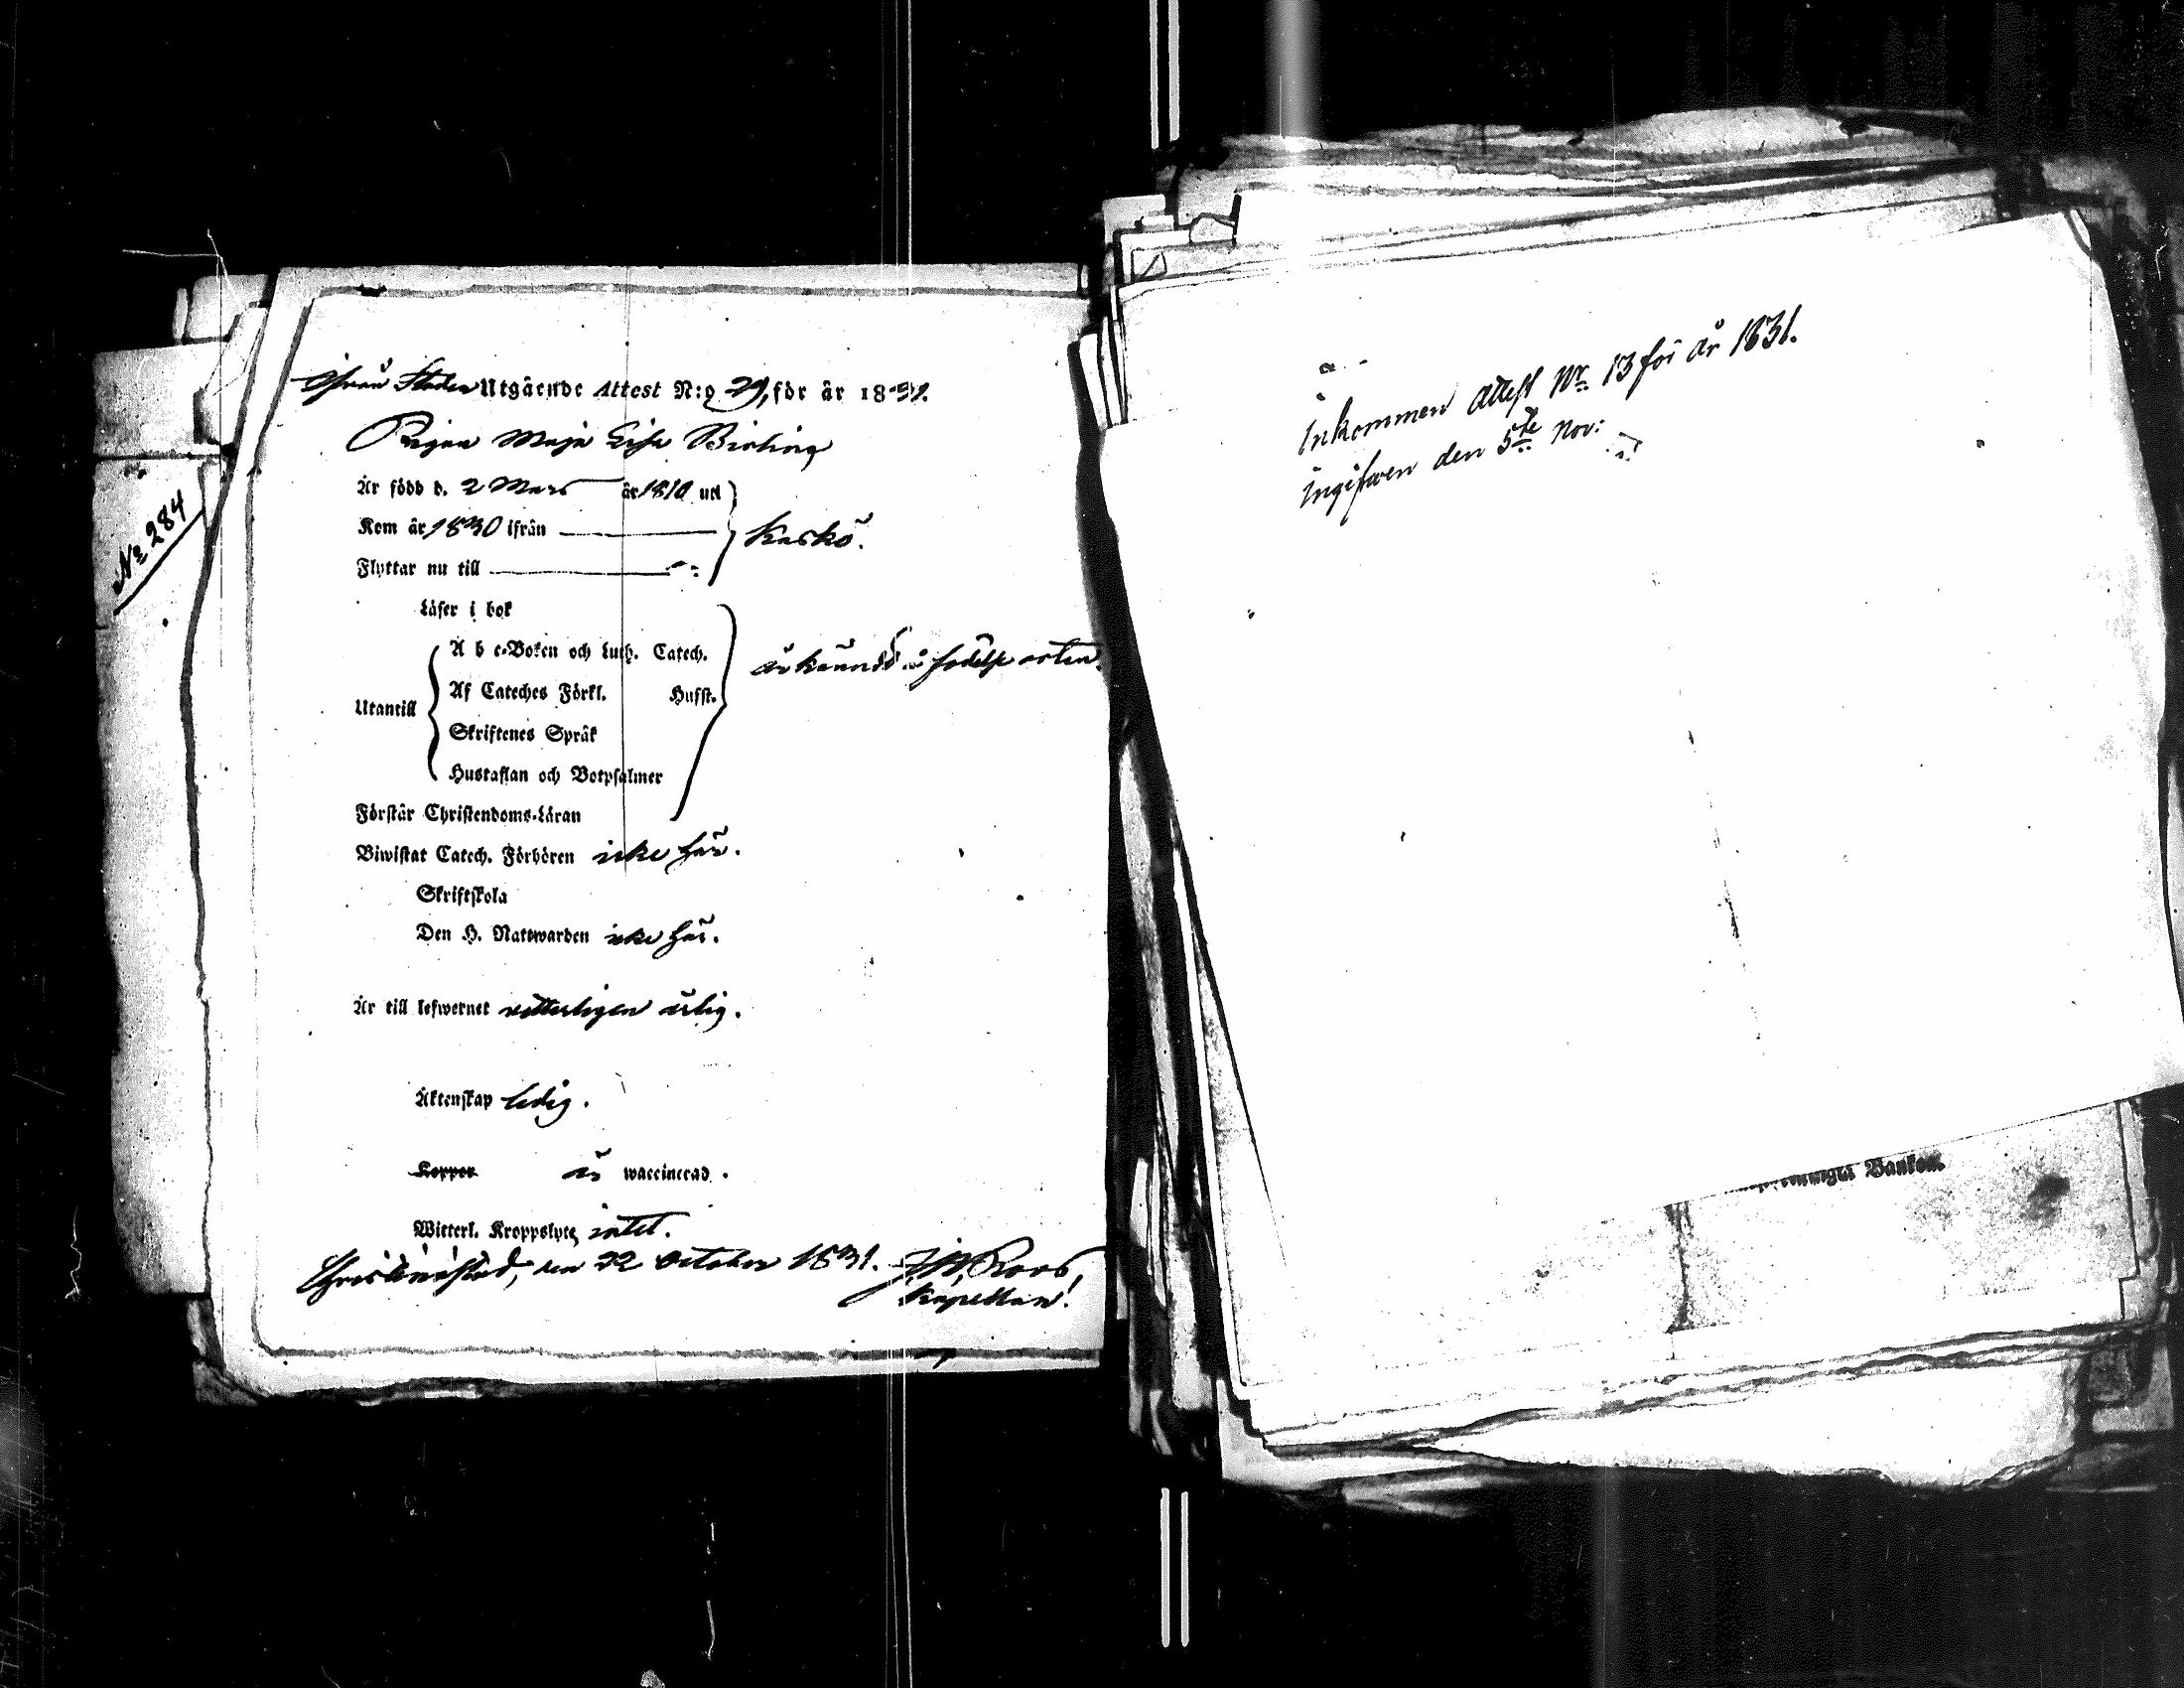 No 284
ifrån Staden Utgående Attest N:o 29, för år 1831.
Pigan Maja Lisa Birling
Är född d. 2 Mars år 1810 uti
Kom år 1830 ifrån
Kaskö.
Flyttar nu till
Läser i bok
A b c-Boken och Luth. Catech.
är kännd i födelse orten.
Af Cateches Förkl. Hufst.
Utantill
Skriftenes Språk
Hustaflan och Botpsalmer
Förstår Christendoms-Läran
Biwistat Catech. Förhören icke här.
Skriftskola
Den H. Nattwarden icke här.
Är till lefwernet vetterligen ärlig.
Äktenskap ledig.
Koppor är waccinerad.
Witterl. Kroppslyte intet.
Christinæstad, den 22 October 1831. Roos,
Kapellan.
Inkommen Attest No. 13 för år 1831.
Ingifwen den 5te Nov:
Banken.